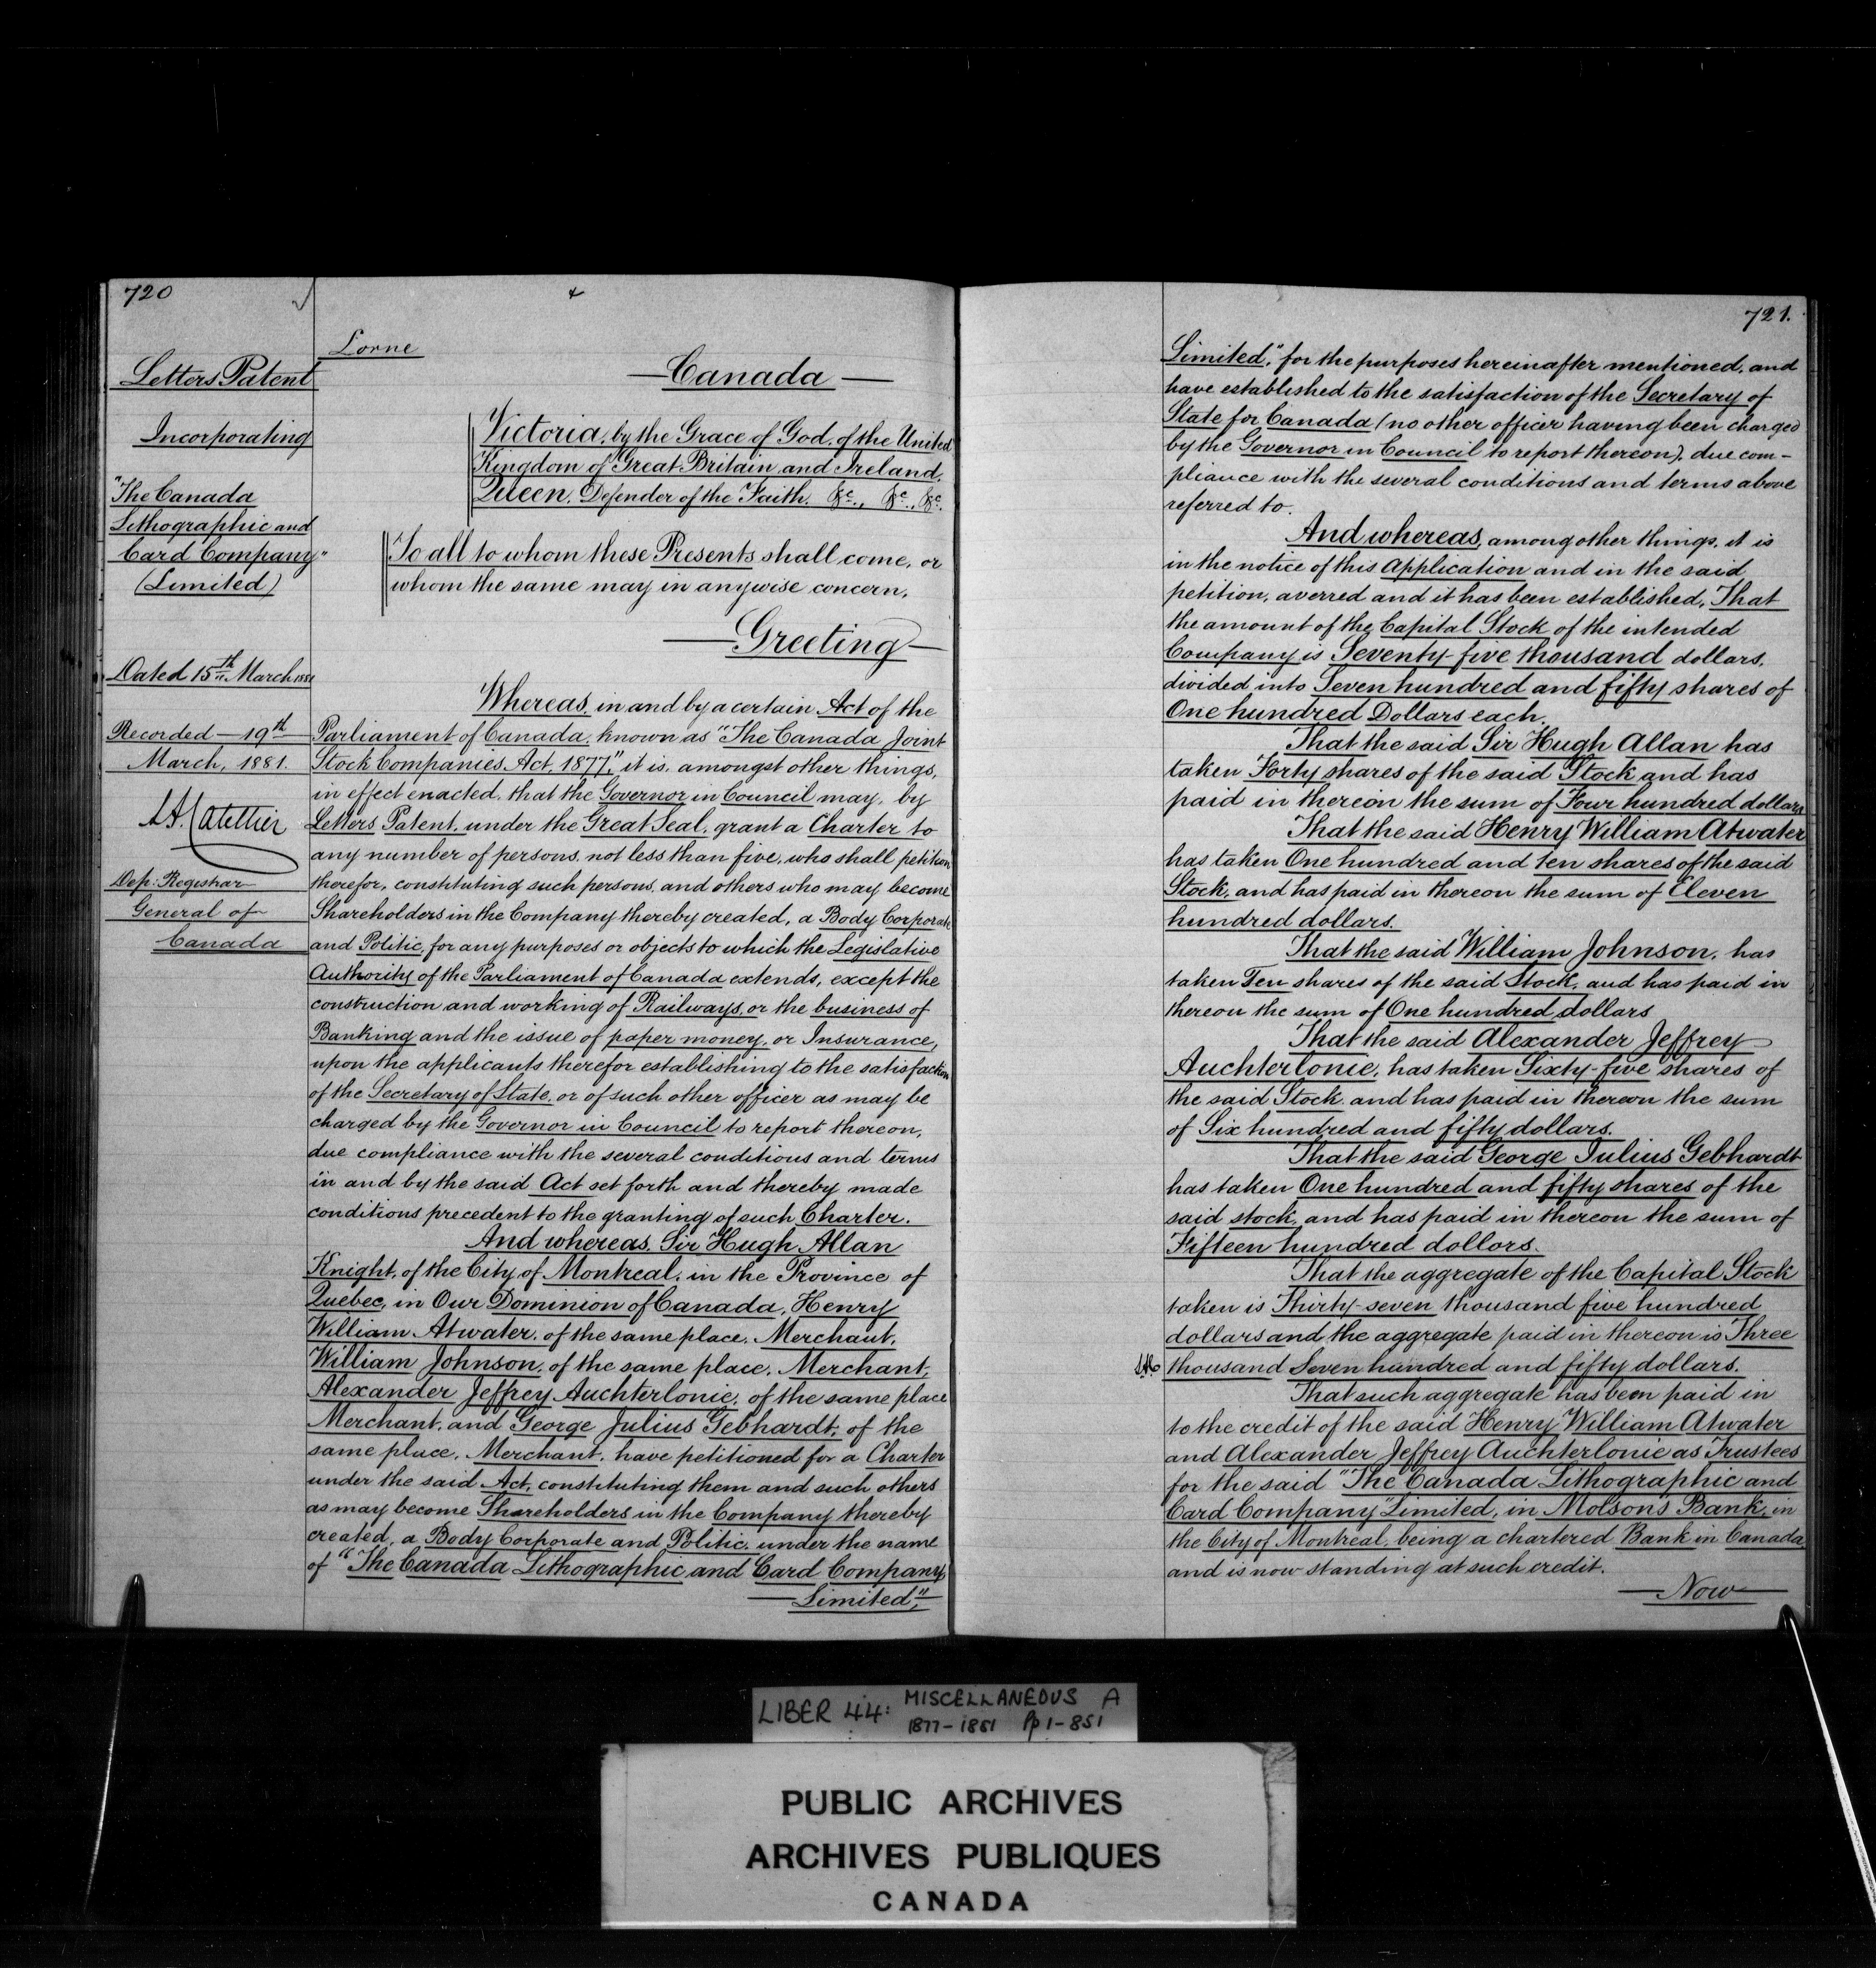 720
Lorne
Letters Patent
Incorporating
"The Canada
Lithographic and
Card Company"
(Limited)
Dated 15th March 1881
Recorded — 19th
March, 1881.
Dep: Registrar
General of
Canada
— Canada —
Victoria, by the Grace of God, of the United
Kingdom of Great Britain and Ireland,
Queen, Defender of the Faith. &c., &c., &c.
To all to whom these Presents shall come, or
whom the same may in anywise concern,
— Greeting —
Whereas, in and by a certain Act of the
Parliament of Canada, known as "The Canada Joint
Stock Companies Act, 1877," it is, amongst other things,
in effect enacted, that the Governor in Council may, by
Letters Patent, under the Great Seal, grant a Charter to
any number of persons, not less than five, who shall petition
therefor, constituting such persons, and others who may become
Shareholders in the Company thereby created, a Body Corporate
and Politic, for any purposes or objects to which the Legislative
Authority of the Parliament of Canada extends, except the
construction and working of Railways, or the business of
Banking and the issue of paper money, or Insurance,
upon the applicants therefor establishing to the satisfaction
of the Secretary of State, or of such other officer as may be
charged by the Governor in Council to report thereon,
due compliance with the several conditions and terms
in and by the said Act set forth and thereby made
conditions precedent to the granting of such Charter.
And whereas, Sir Hugh Allan
Knight, of the City of Montreal, in the Province of
Quebec, in Our Dominion of Canada, Henry
William Atwater, of the same place, Merchant,
William Johnson, of the same place, Merchant,
Alexander Jeffrey Auchterlonie, of the same place
Merchant, and George Julius Gebhardt, of the
same place, Merchant, have petitioned for a Charter
under the said Act, constituting them and such others
as may become Shareholders in the Company thereby
created, a Body Corporate and Politic, under the name
of "The Canada Lithographic and Card Company
— Limited",
721.
Limited", for the purposes hereinafter mentioned, and
have established to the satisfaction of the Secretary of
State for Canada (no other officer having been charged
by the Governor in Council to report thereon), due com-
pliance with the several conditions and terms above
referred to.
And whereas, among other things, it is
in the notice of this Application and in the said
petition, averred and it has been established, That
the amount of the Capital Stock of the intended
Company is Seventy-five thousand dollars,
divided into Seven hundred and fifty shares of
One hundred Dollars each.
That the said Sir Hugh Allan has
taken Forty shares of the said Stock and has
paid in thereon the sum of Four hundred dollars
That the said Henry William Atwater
has taken One hundred and ten shares of the said
Stock, and has paid in thereon the sum of Eleven
hundred dollars.
That the said William Johnson, has
taken Ten shares of the said Stock, and has paid in
thereon the sum of One hundred dollars
That the said Alexander Jeffrey
Auchterlonie, has taken Sixty-five shares of
the said Stock and has paid in thereon the sum
of Six hundred and fifty dollars.
That the said George Julius Gebhardt
has taken One hundred and fifty shares of the
said stock, and has paid in thereon the sum of
Fifteen hundred dollors.
That the aggregate of the Capital Stock
taken is Thirty-seven thousand five hundred
dollars and the aggregate paid in thereon is Three
thousand Seven hundred and fifty dollars.
That such aggregate has been paid in
to the credit of the said Henry William Atwater
and Alexander Jeffrey Auchterlonie as Trustees
for the said "The Canada Lithographic and
Card Company" Limited, in Molson's Bank, in
the City of Montreal, being a chartered Bank in Canada,
and is now standing at such credit.
— Now —
LIBER 44: MISCELLANEOUS A
1877-1881 Pp 1-851
PUBLIC ARCHIVES
ARCHIVES PUBLIQUES
CANADA